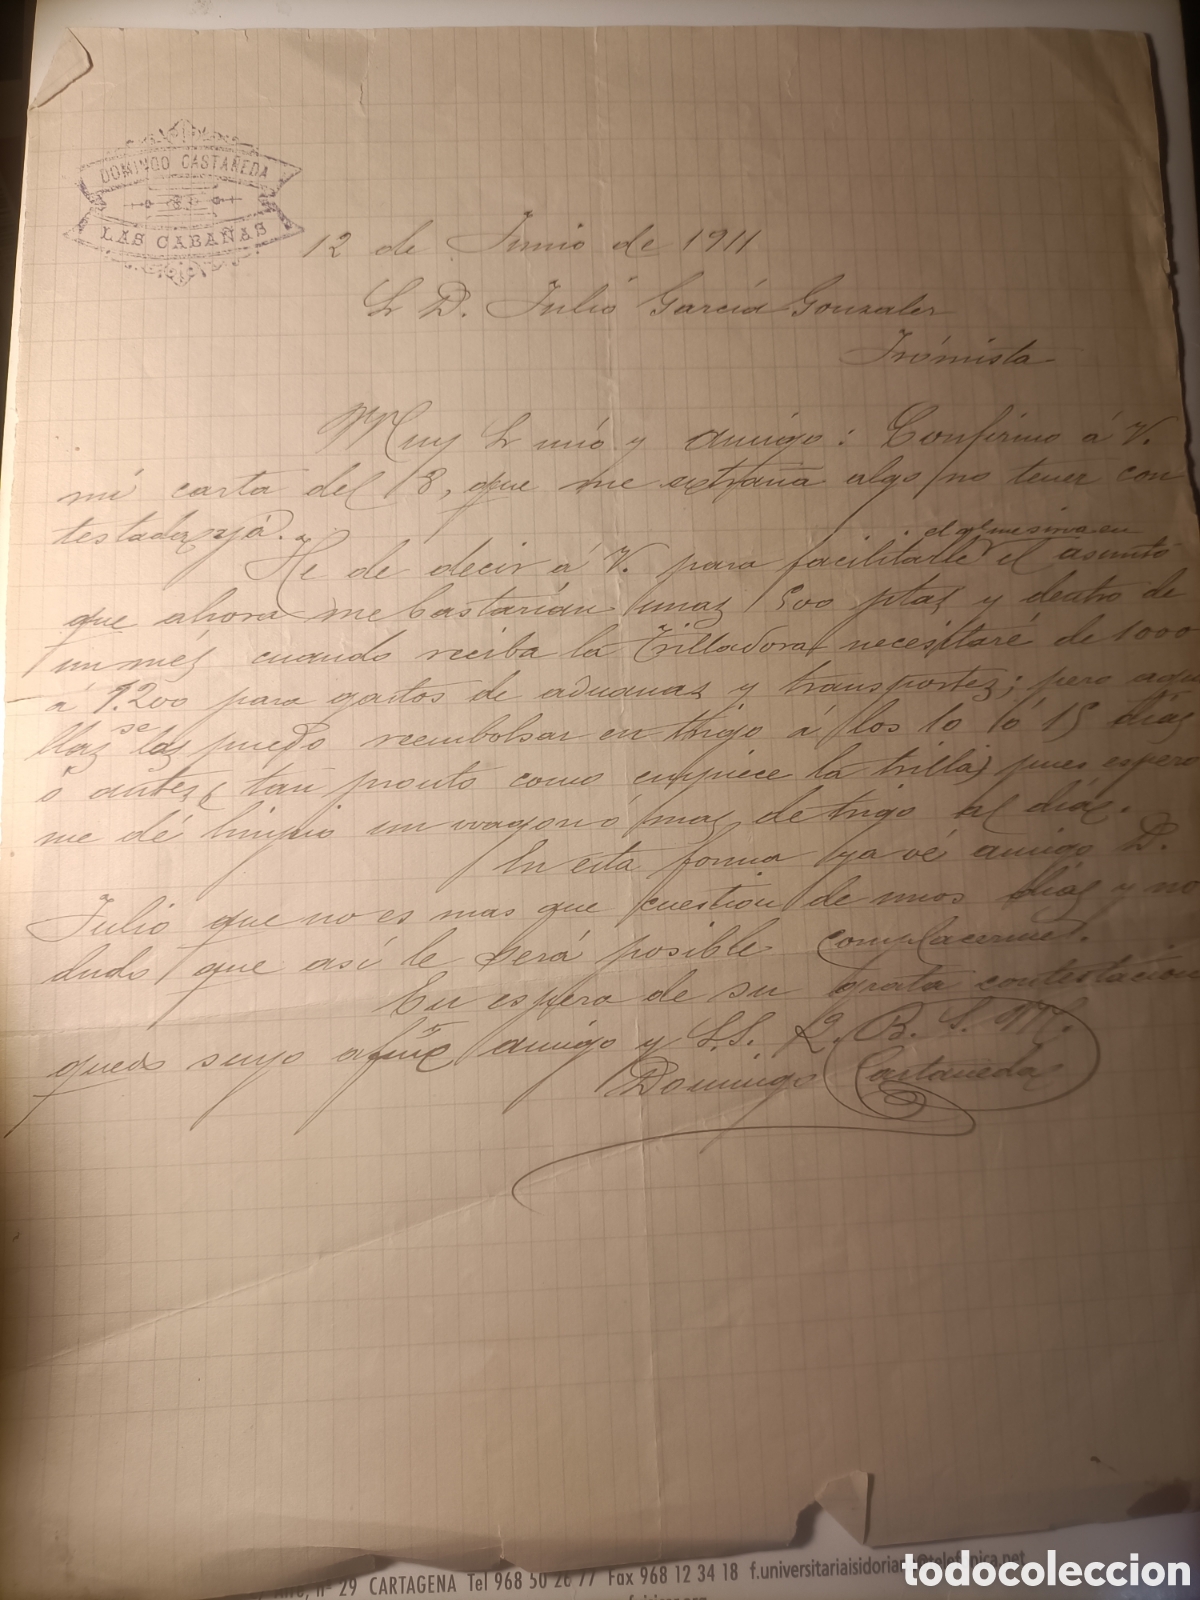 DOMINGO CASTAÑEDA
LAS CABAÑAS
12 de Junio de 1911
Sr D. Julio García Gonzalez
Frómista
Muy Sr mío y amigo: Confirmo á V.
mi carta del 8, que me extraña algo no tener con
testada yá.
He de decir á V. para facilitarle el asunto
que ahora me bastarían unas 500 ptas y dentro de
un mes cuando reciba la Trilladora necesitaré de 1000
á 1.200 para gastos de aduanas y transportes; pero aque
llas se las puedo reembolsar en trigo á los 10 ó 15 días
ó antes, tan pronto como empiece la trilla, pues espero
me dé limpio un wagon ó mas de trigo al día.
En esta forma ya vé amigo D.
Julio que no es mas que cuestion de unos días y no
dudo que así le será posible complacerme.
En espera de su grata contestación
quedo suyo afmo amigo y S.S. Q. B. S. M.
Domingo Castañeda
nº 29 CARTAGENA Tel 968 50 26 77 Fax 968 12 34 18 f.universitariaisidoriana@telefonica.net
todocoleccion